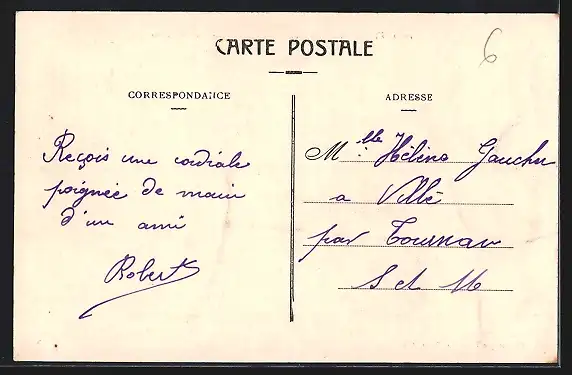 CARTE POSTALE
6
CORRESPONDANCE
ADRESSE
Reçois une cordiale
poignée de main
d'un ami
Robert
Mlle Hélène Gaucher
a Villé
par Tournan
S et M